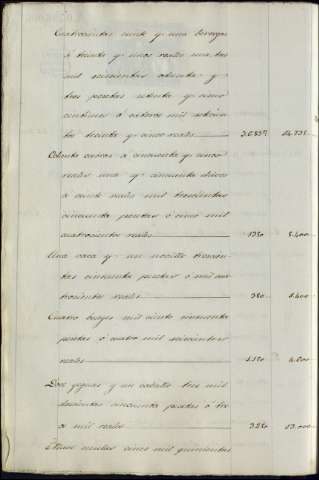 Cuatrocientas veinte y una borregas
á treinta y cinco reales una tres
mil seiscientas ochenta y
tres pesetas setenta y cinco
centimos ó catorce mil setecien
tos treinta y cinco reales 14.735
cabras á cincuenta y cinco
reales una y cincuenta chivos
á veinte reales mil trescientas
cincuenta pesetas ó cinco mil
cuatrocientos reales 1350 5.400
Una vaca y un novillo trescien
tas cincuenta pesetas ó mil cua
trocientos reales 350 1.400
Cuatro bueyes mil ciento cincuenta
pesetas ó cuatro mil seiscientos
reales 1.150 4.600
Dos yeguas y un caballo tres mil
doscientas cincuenta pesetas ó tre
ce mil reales 3250 13.000
mulas cinco mil quinientas